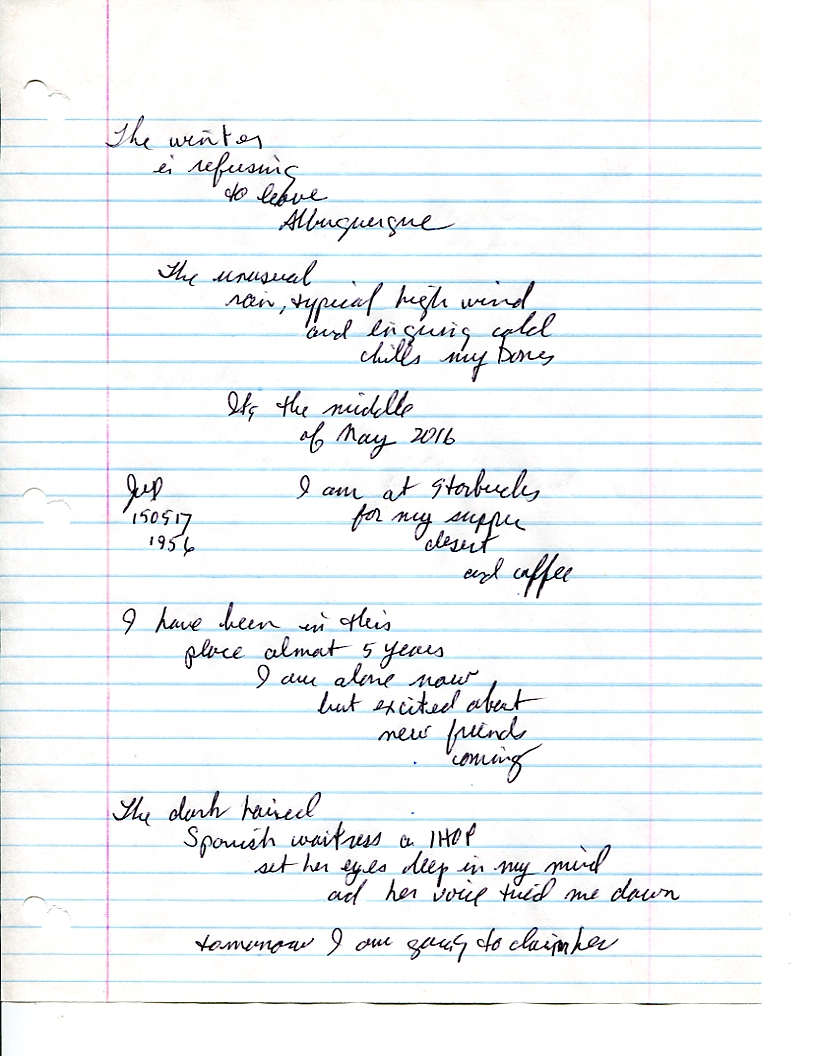 The winter
is refusing
to leave
Albuquerque
The unusual
rain, typical high wind
and linguring cold
chills my bones
Its the middle
of May 2016
I am at Starbucks
for my supper
desert
and coffee
150517
1956
I have been in this
place almost 5 years
I am alone now
but excited about
new friends
coming
The dark haired
Spanish waitress a IHOP
set her eyes deep in my mind
ad her voice tied me down
tomorrow I am going to claim her